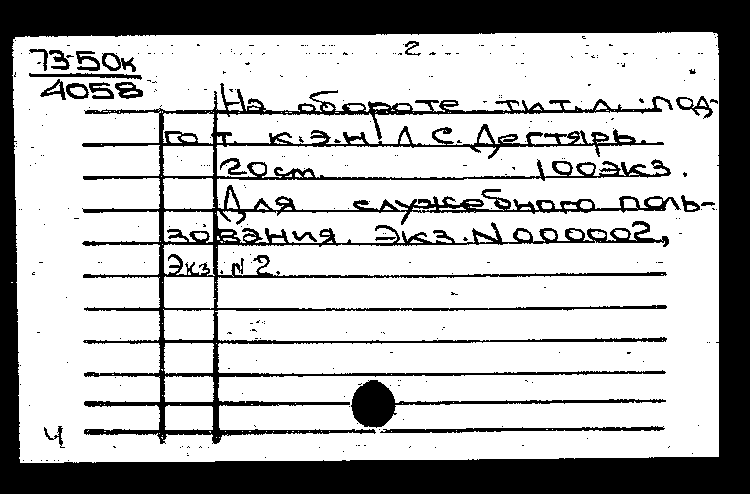 2.
73-50к
4058
На обороте тит.л.: под-
гот. к.э.н. Л.С. Дегтярь.
20ст. 100экз.
Для служебного поль-
зования. Экз. N 000002,
Экз. N 2.
Ч